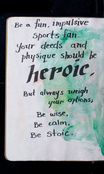 Be a fun, impulsive
sports fan
your deeds and
physique should be
heroic.
But always weigh
your options,
Be wise,
Be calm,
Be Stoic.